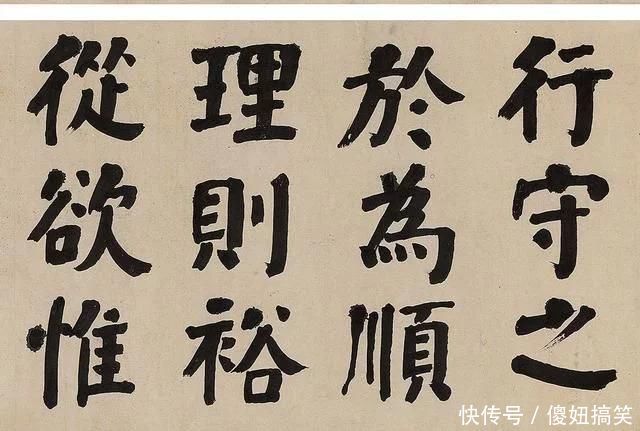 行守之
於為順
理則裕
從欲惟
快传号／傻妞搞笑